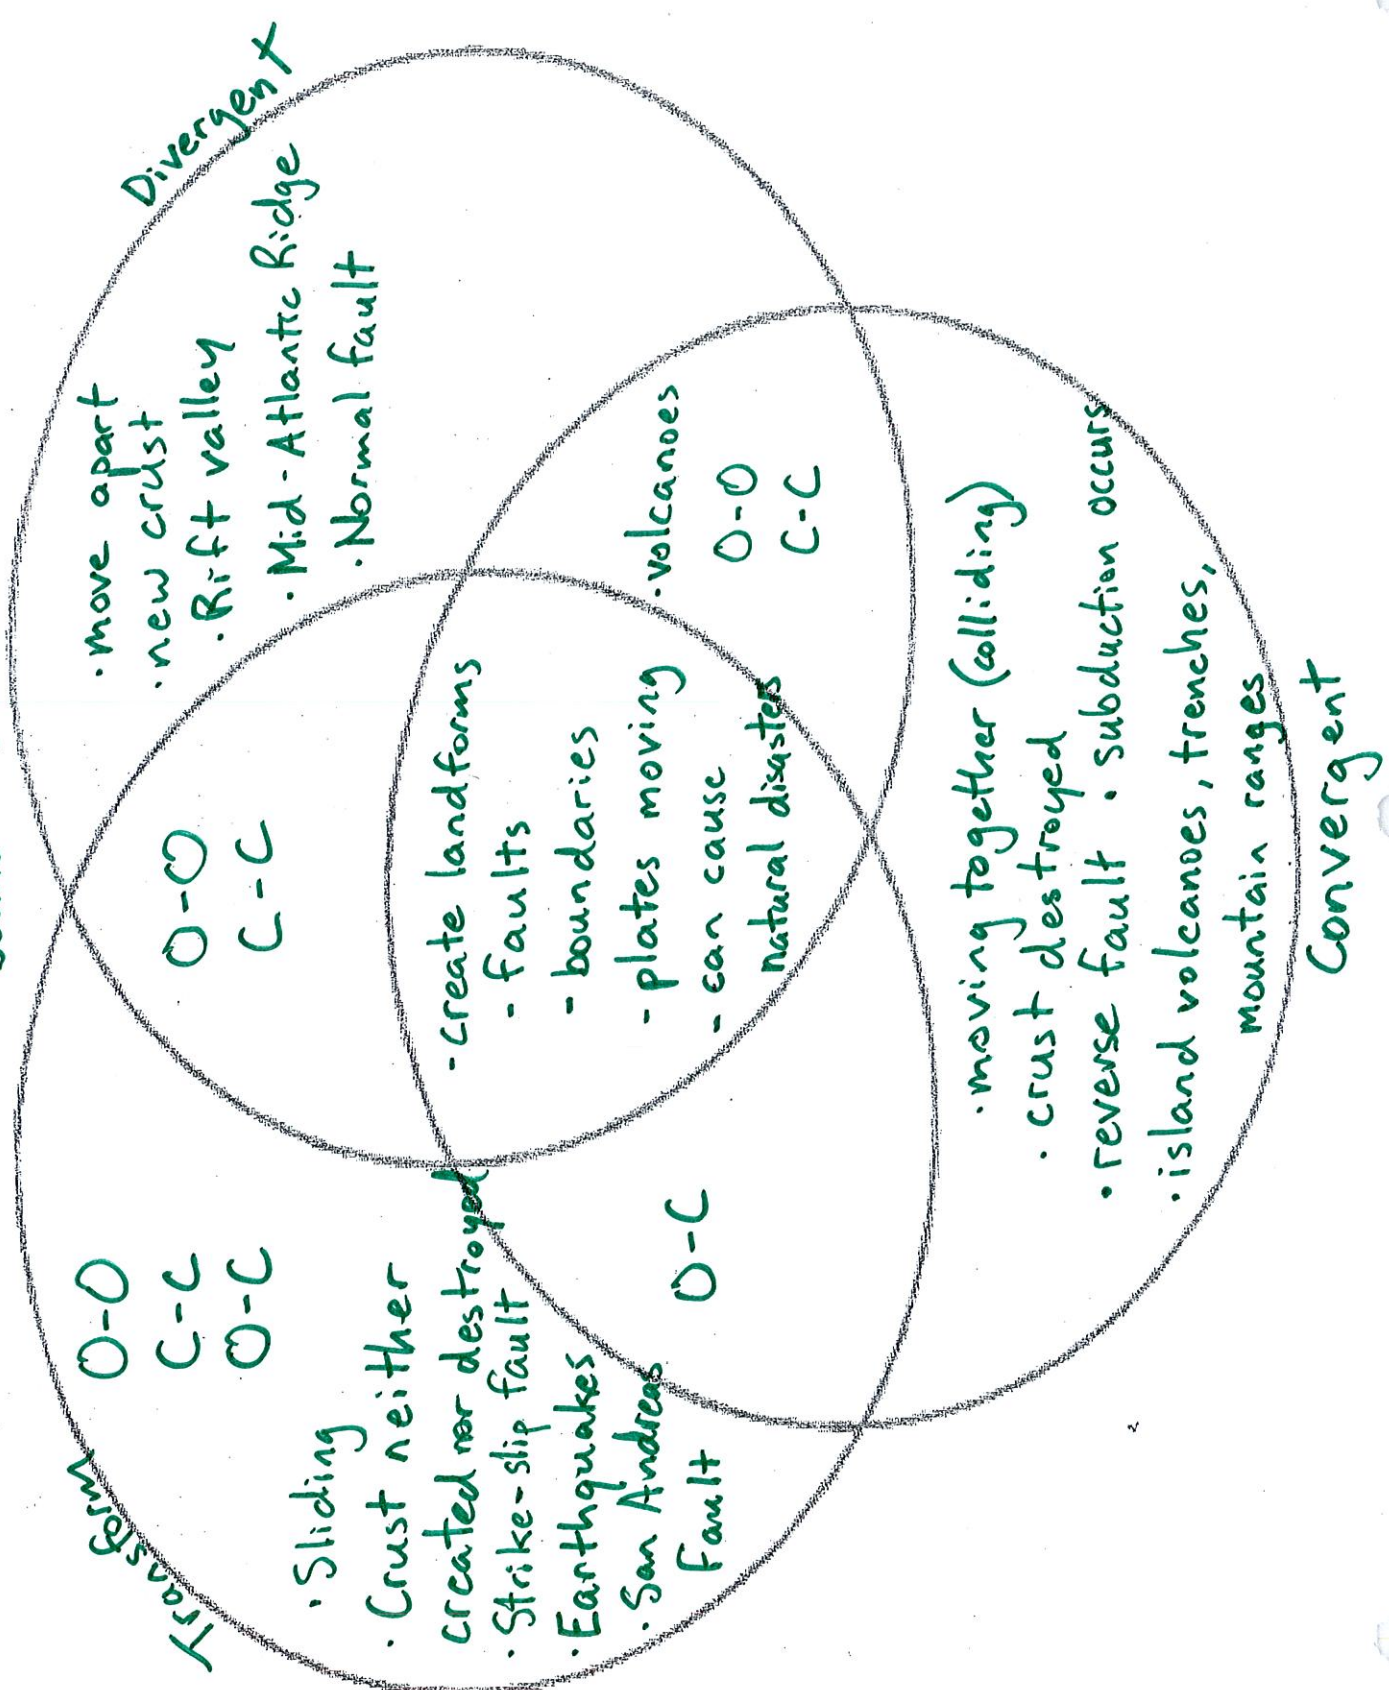 Transform
O-O
C-C
O-C
· Sliding
· Crust neither
created nor destroyed
· Strike-slip fault
· Earthquakes
· San Andreas
Fault
O-O
C-C
Divergent
· move apart
· new crust
· Rift valley
· Mid-Atlantic Ridge
· Normal fault
- create landforms
- faults
- boundaries
- plates moving
- can cause
natural disasters
O-C
· volcanoes
O-O
C-C
· moving together (colliding)
· crust destroyed
· reverse fault · subduction occurs
· island volcanoes, trenches,
mountain ranges
Convergent